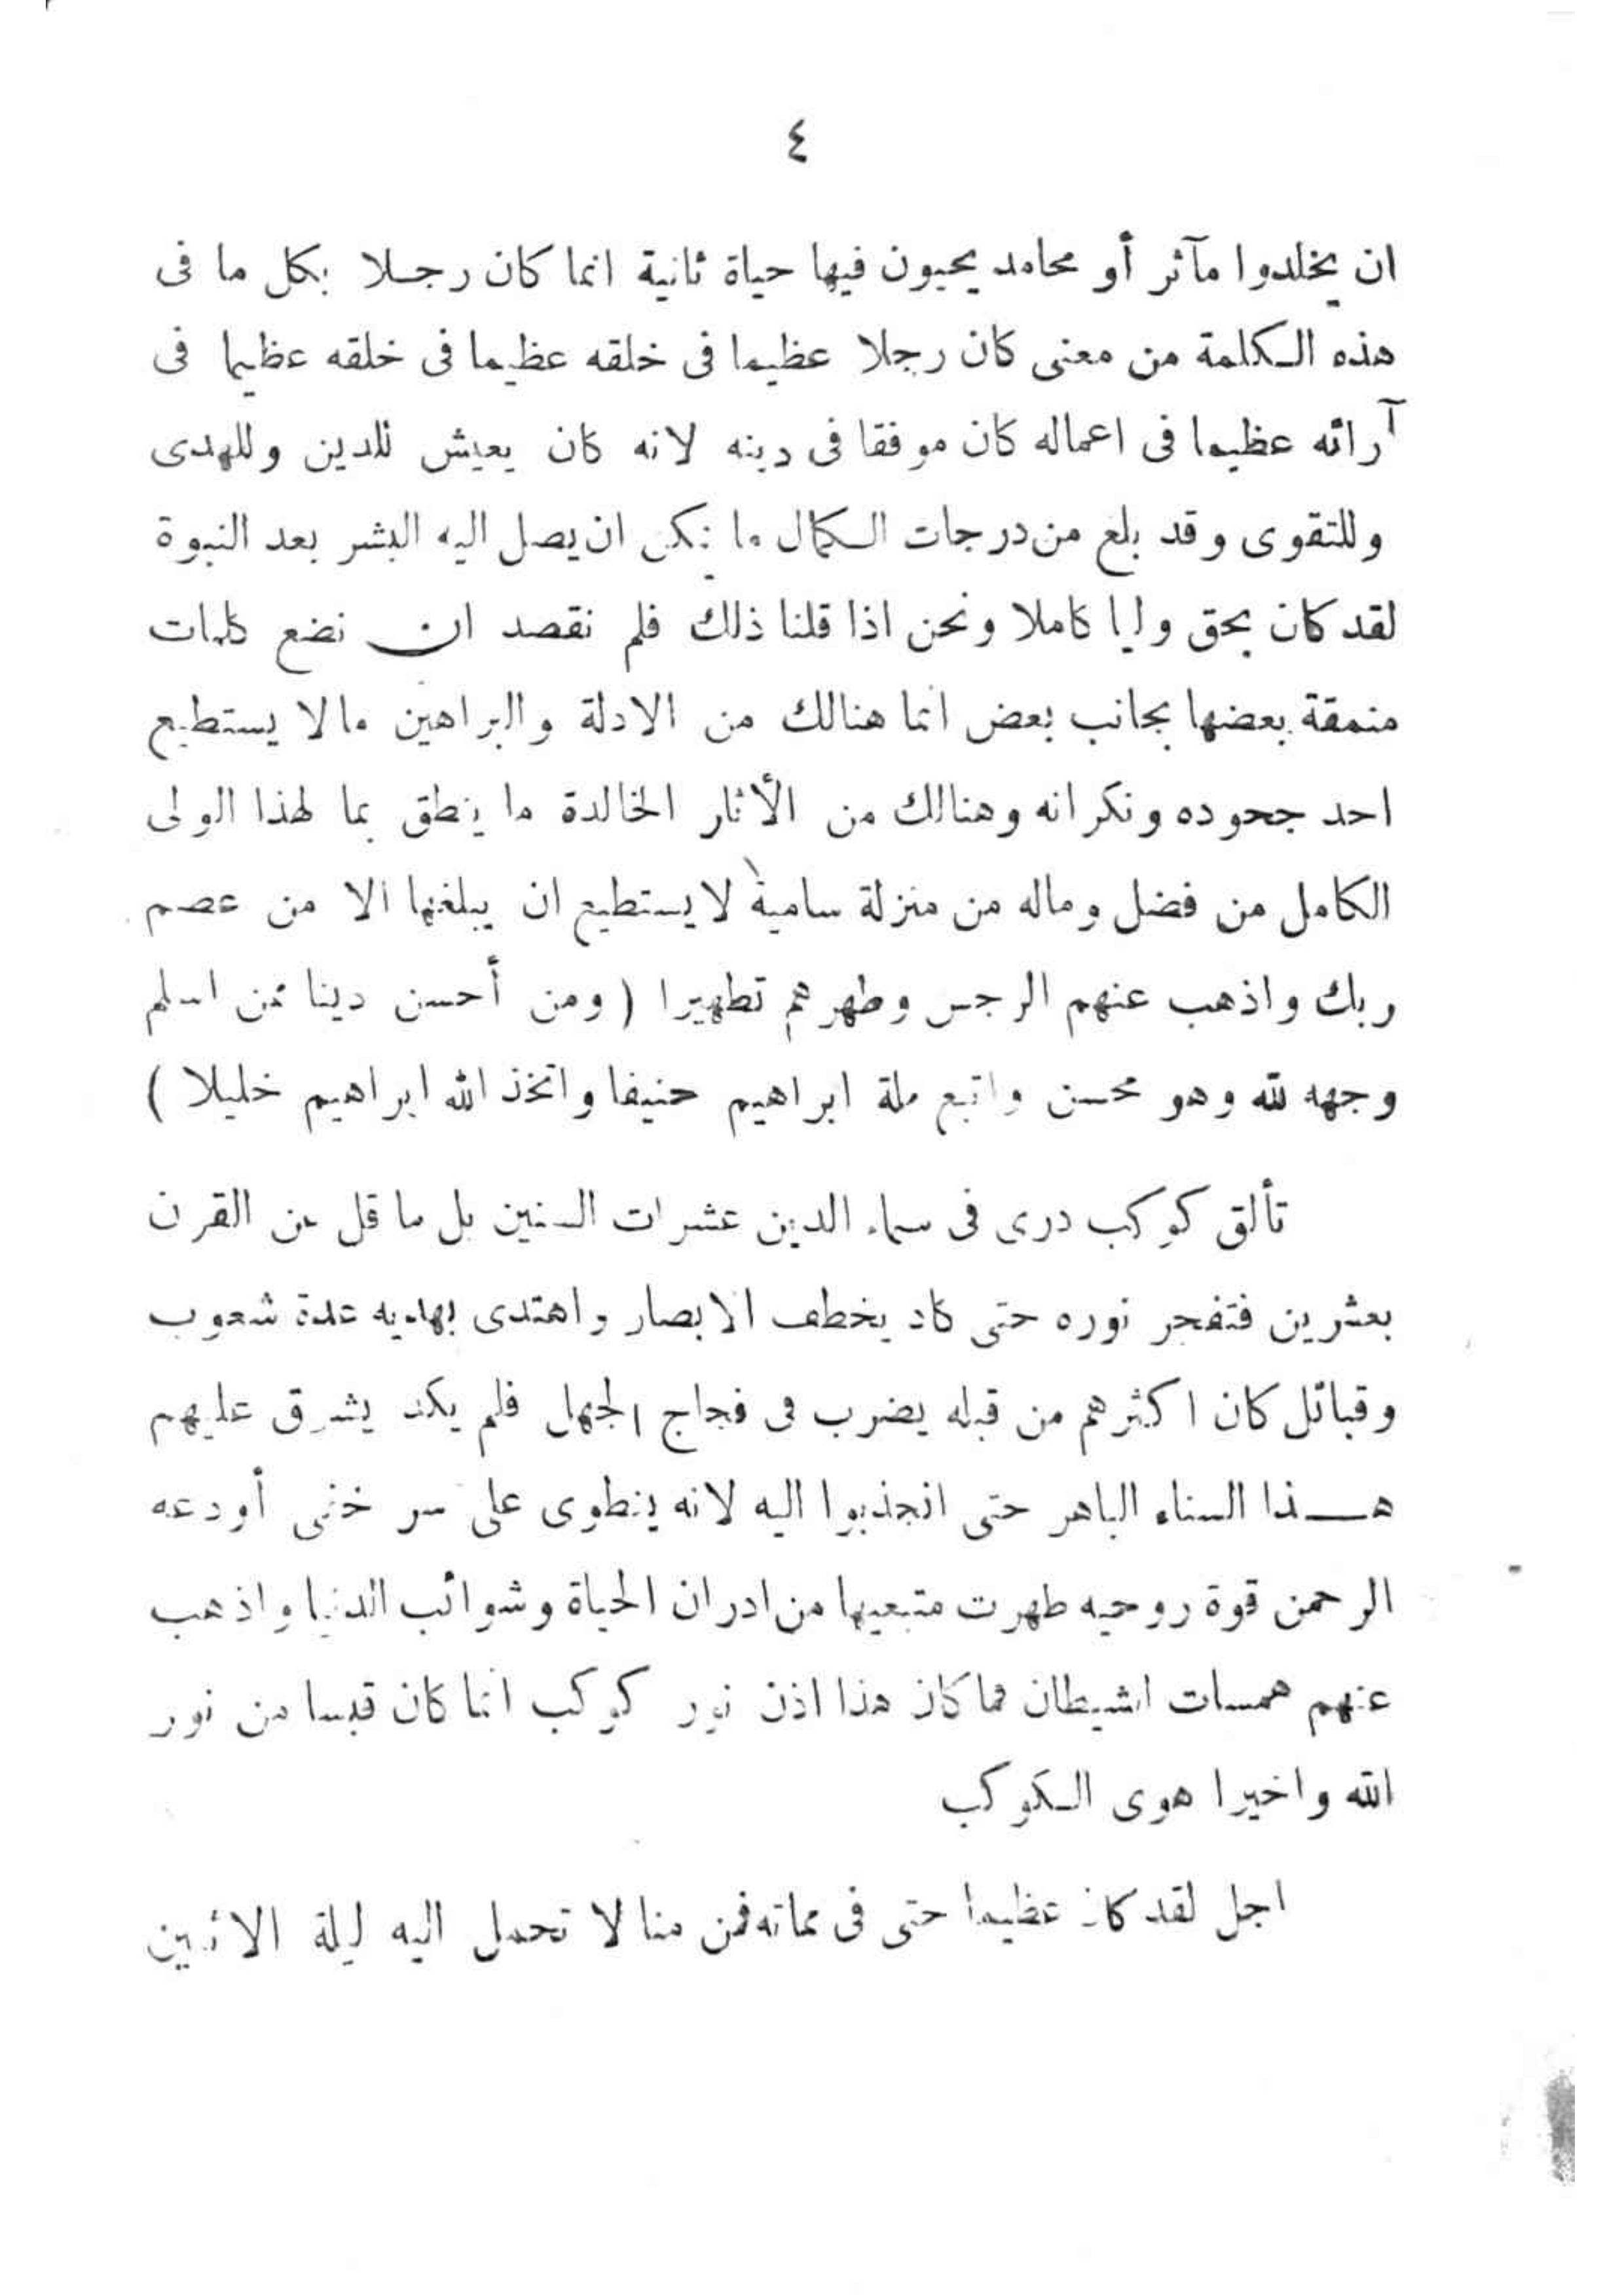 ٤
ان يخلدوا مآثر أو محامد يحيون فيها حياة ثانية انما كان رجلا بكل ما فى
هذه الكلمة من معنى كان رجلا عظيما فى خلقه عظيما فى خلقه عظيما فى
آرائه عظيما فى اعماله كان موفقا فى دينه لانه كان يعيش للدين وللهدى
وللتقوى وقد بلغ من درجات الكمال ما يمكن ان يصل اليه البشر بعد النبوة
لقد كان بحق وليا كاملا ونحن اذا قلنا ذلك فلم نقصد ان نضع كلمات
منمقة بعضها بجانب بعض انما هنالك من الادلة والبراهين ما لا يستطيع
احد جحوده ونكرانه وهنالك من الأثار الخالدة ما ينطق بما لهذا الولى
الكامل من فضل وماله من منزلة سامية لا يستطيع ان يبلغها الا من عصم
ربك واذهب عنهم الرجس وطهرهم تطهيرا ( ومن أحسن دينا ممن اسلم
وجهه لله وهو محسن واتبع ملة ابراهيم حنيفا واتخذ الله ابراهيم خليلا )
تألق كوكب درى فى سماء الدين عشرات السنين بل ما قل عن القرن
بعشرين فتفجر نوره حتى كاد يخطف الابصار واهتدى بهديه عدة شعوب
وقبائل كان اكثرهم من قبله يضرب فى فجاج الجهل فلم يكد يشرق عليهم
هـذا السناء الباهر حتى انجذبوا اليه لانه ينطوى على سر خفى أودعه
الرحمن قوة روحيه طهرت متبعيها من ادران الحياة وشوائب الدنيا واذهب
عنهم همسات الشيطان فما كان هذا اذن نور كوكب انما كان قبسا من نور
الله واخيرا هوى الكوكب
اجل لقد كان عظيما حتى فى مماته فمن منا لا تحمل اليه ليلة الاثنين